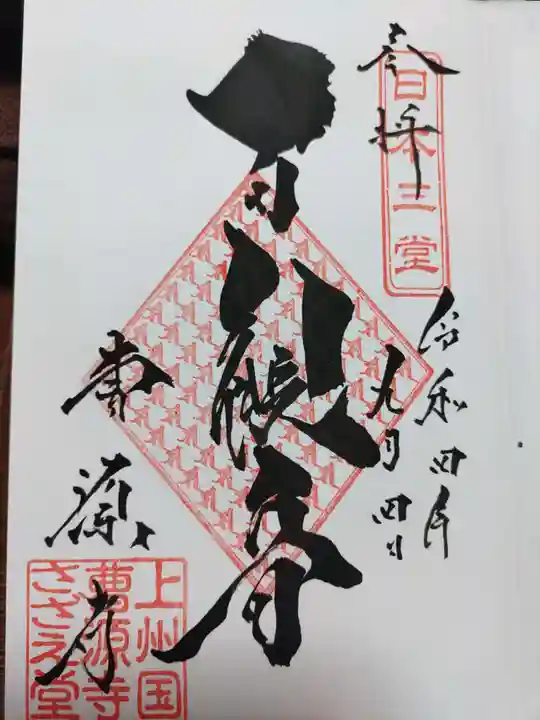 奉拝
日本三堂
令和四年
九月四日
観音
曹源寺
上州国
曹源寺
さざえ堂